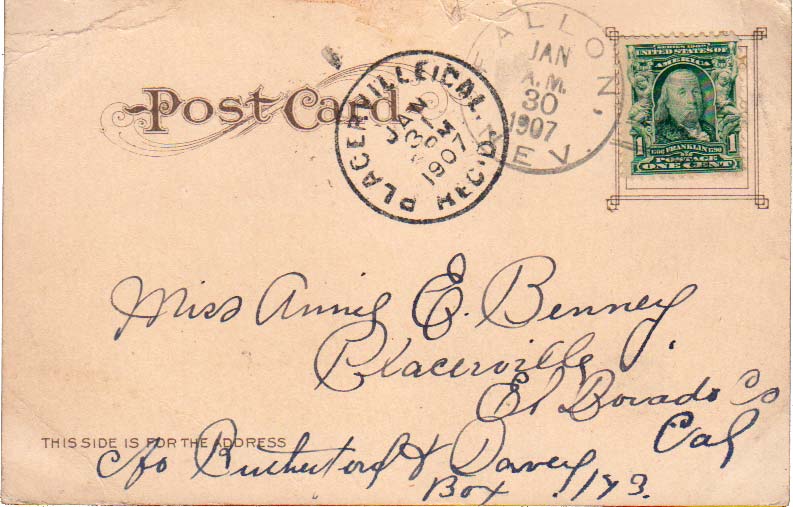 Post Card
PLACERVILLE, CAL. REC'D
JAN
31
PM
1907
FALLON, NEV.
JAN
A.M.
30
1907
SERIES 1902
UNITED STATES OF
AMERICA
1 1
FRANKLIN
POSTAGE
ONE CENT
Miss Annie E. Benney
Placerville,
El Dorado Co
Cal
THIS SIDE IS FOR THE ADDRESS
c/o Rutherford & Davey
Box 173.